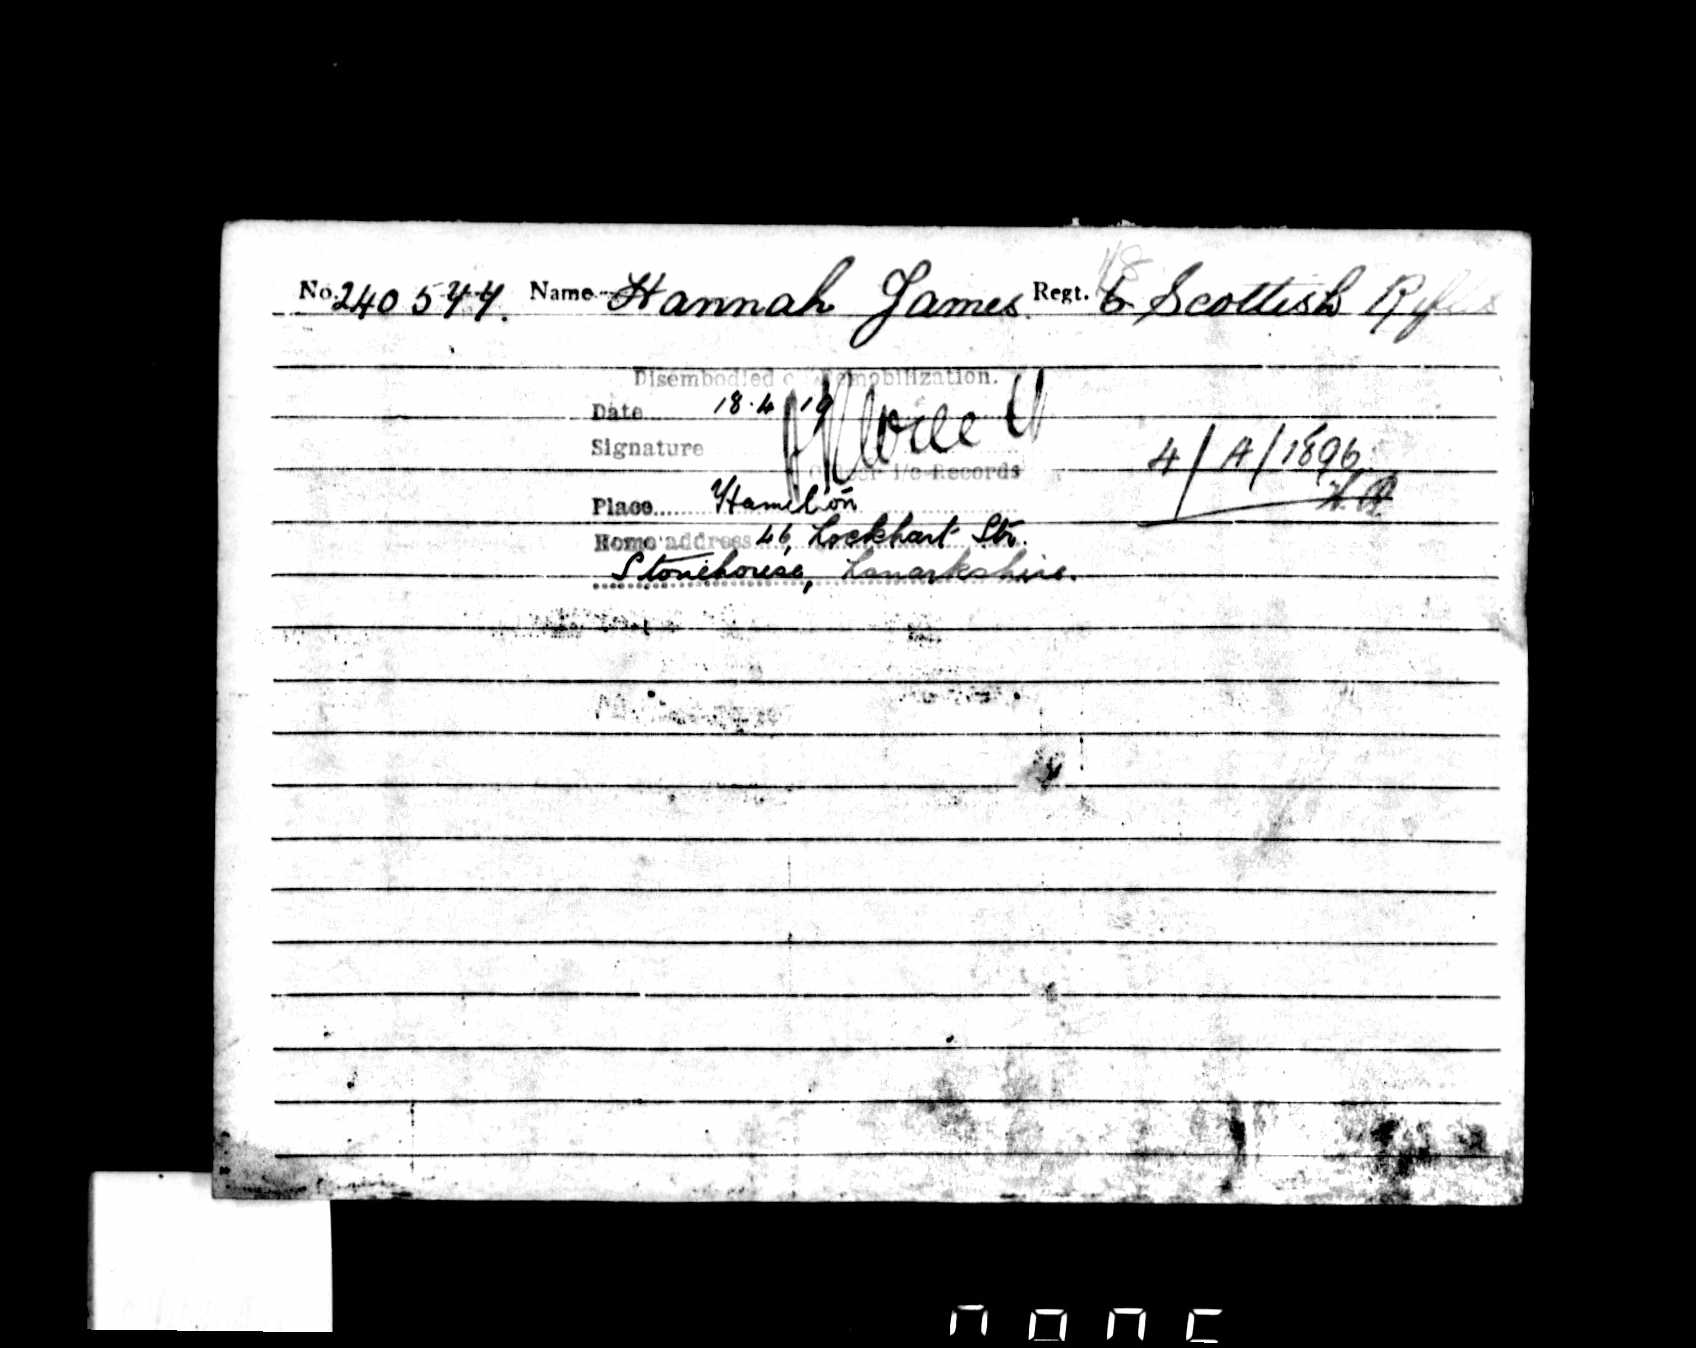 No. 240544. Name Hannah James. Regt. 6 Scottish Rifles
Disembodied on Demobilization.
Date 18.4.19
Signature
Officer i/c Records
4/A/1896
Place Hamilton
Home address 46, Lockhart Str.
Stonehouse, Lanarkshire.